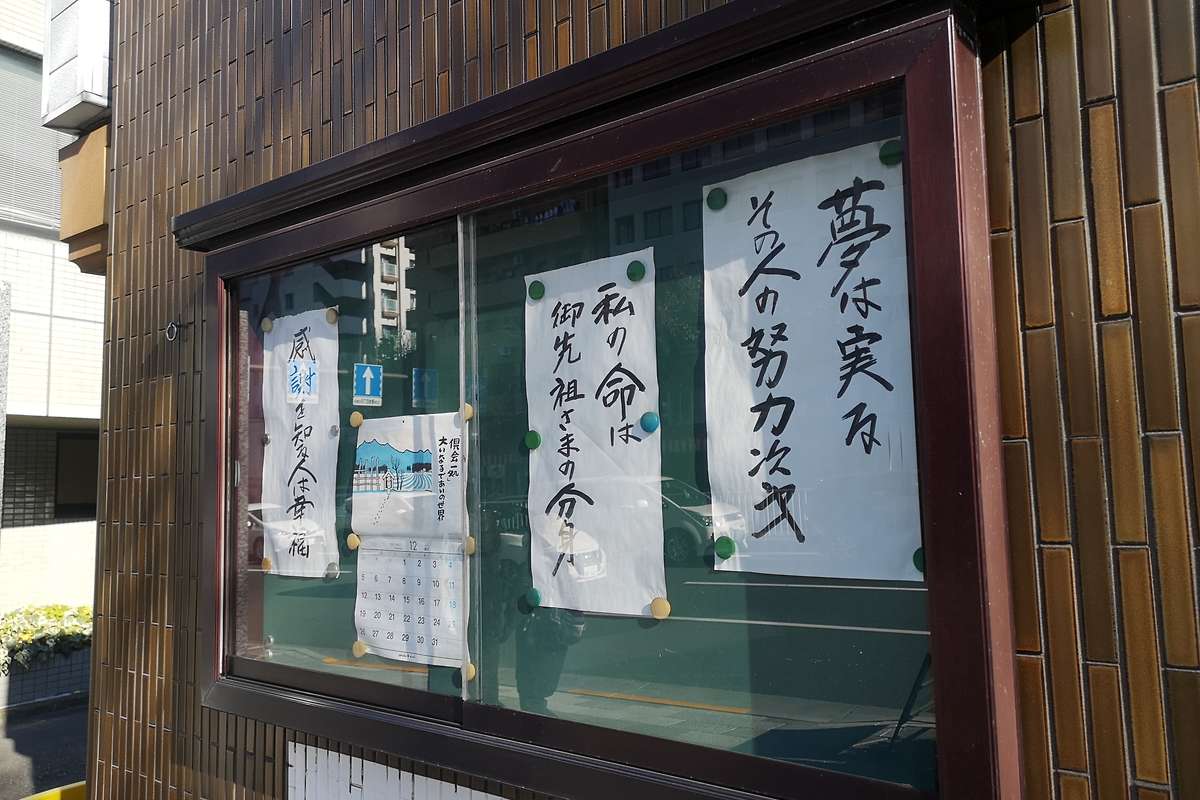 夢は実る
その人の努力次第
私の命は
御先祖さまの分身
感謝を知る人は幸福
倶会一処
大いなるであいの世界
12
1 2 3 4
5 6 7 8 9 10 11
12 13 14 15 16 17 18
19 20 21 22 23 24 25
26 27 28 29 30 31